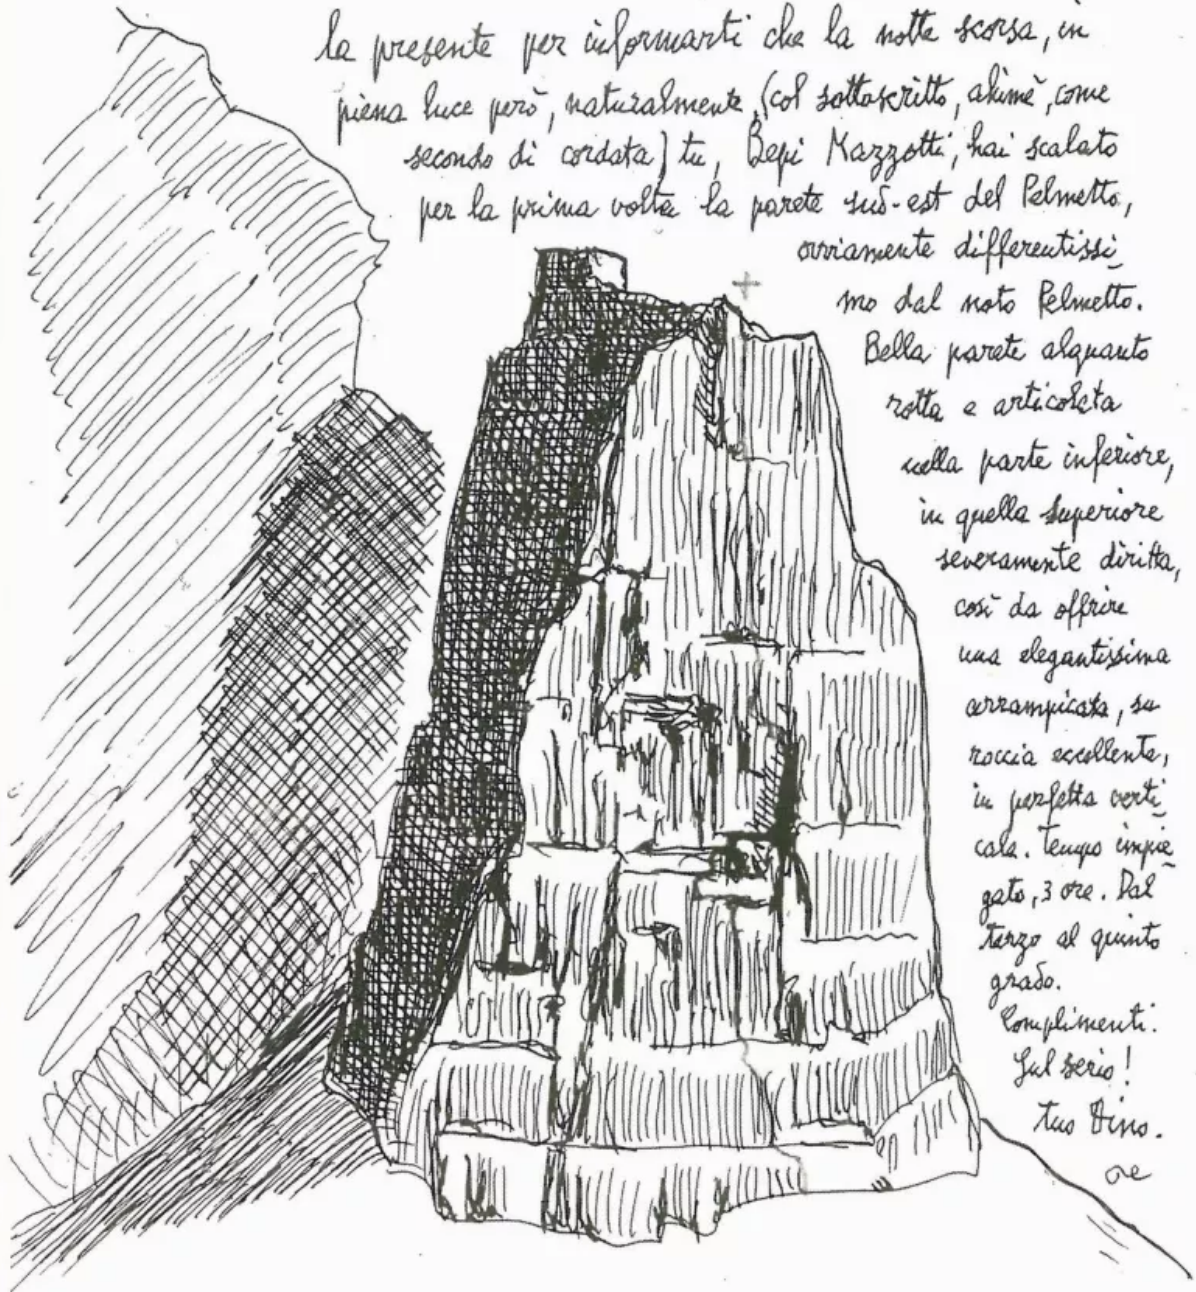 la presente per informarti che la notte scorsa, in
piena luce però, naturalmente, (col sottoscritto, ahimè, come
secondo di cordata) tu, Bepi Mazzotti, hai scalato
per la prima volta la parete sud-est del Pelmetto,
ovviamente differentissi
mo dal noto Pelmetto.
Bella parete alquanto
rotta e articolata
nella parte inferiore,
in quella superiore
severamente diritta,
così da offrire
una elegantissima
arrampicata, su
roccia eccellente,
in perfetta verti
cale. Tempo impie
gato, 3 ore. Dal
terzo al quinto
grado.
Complimenti.
Sul serio!
tuo Dino.